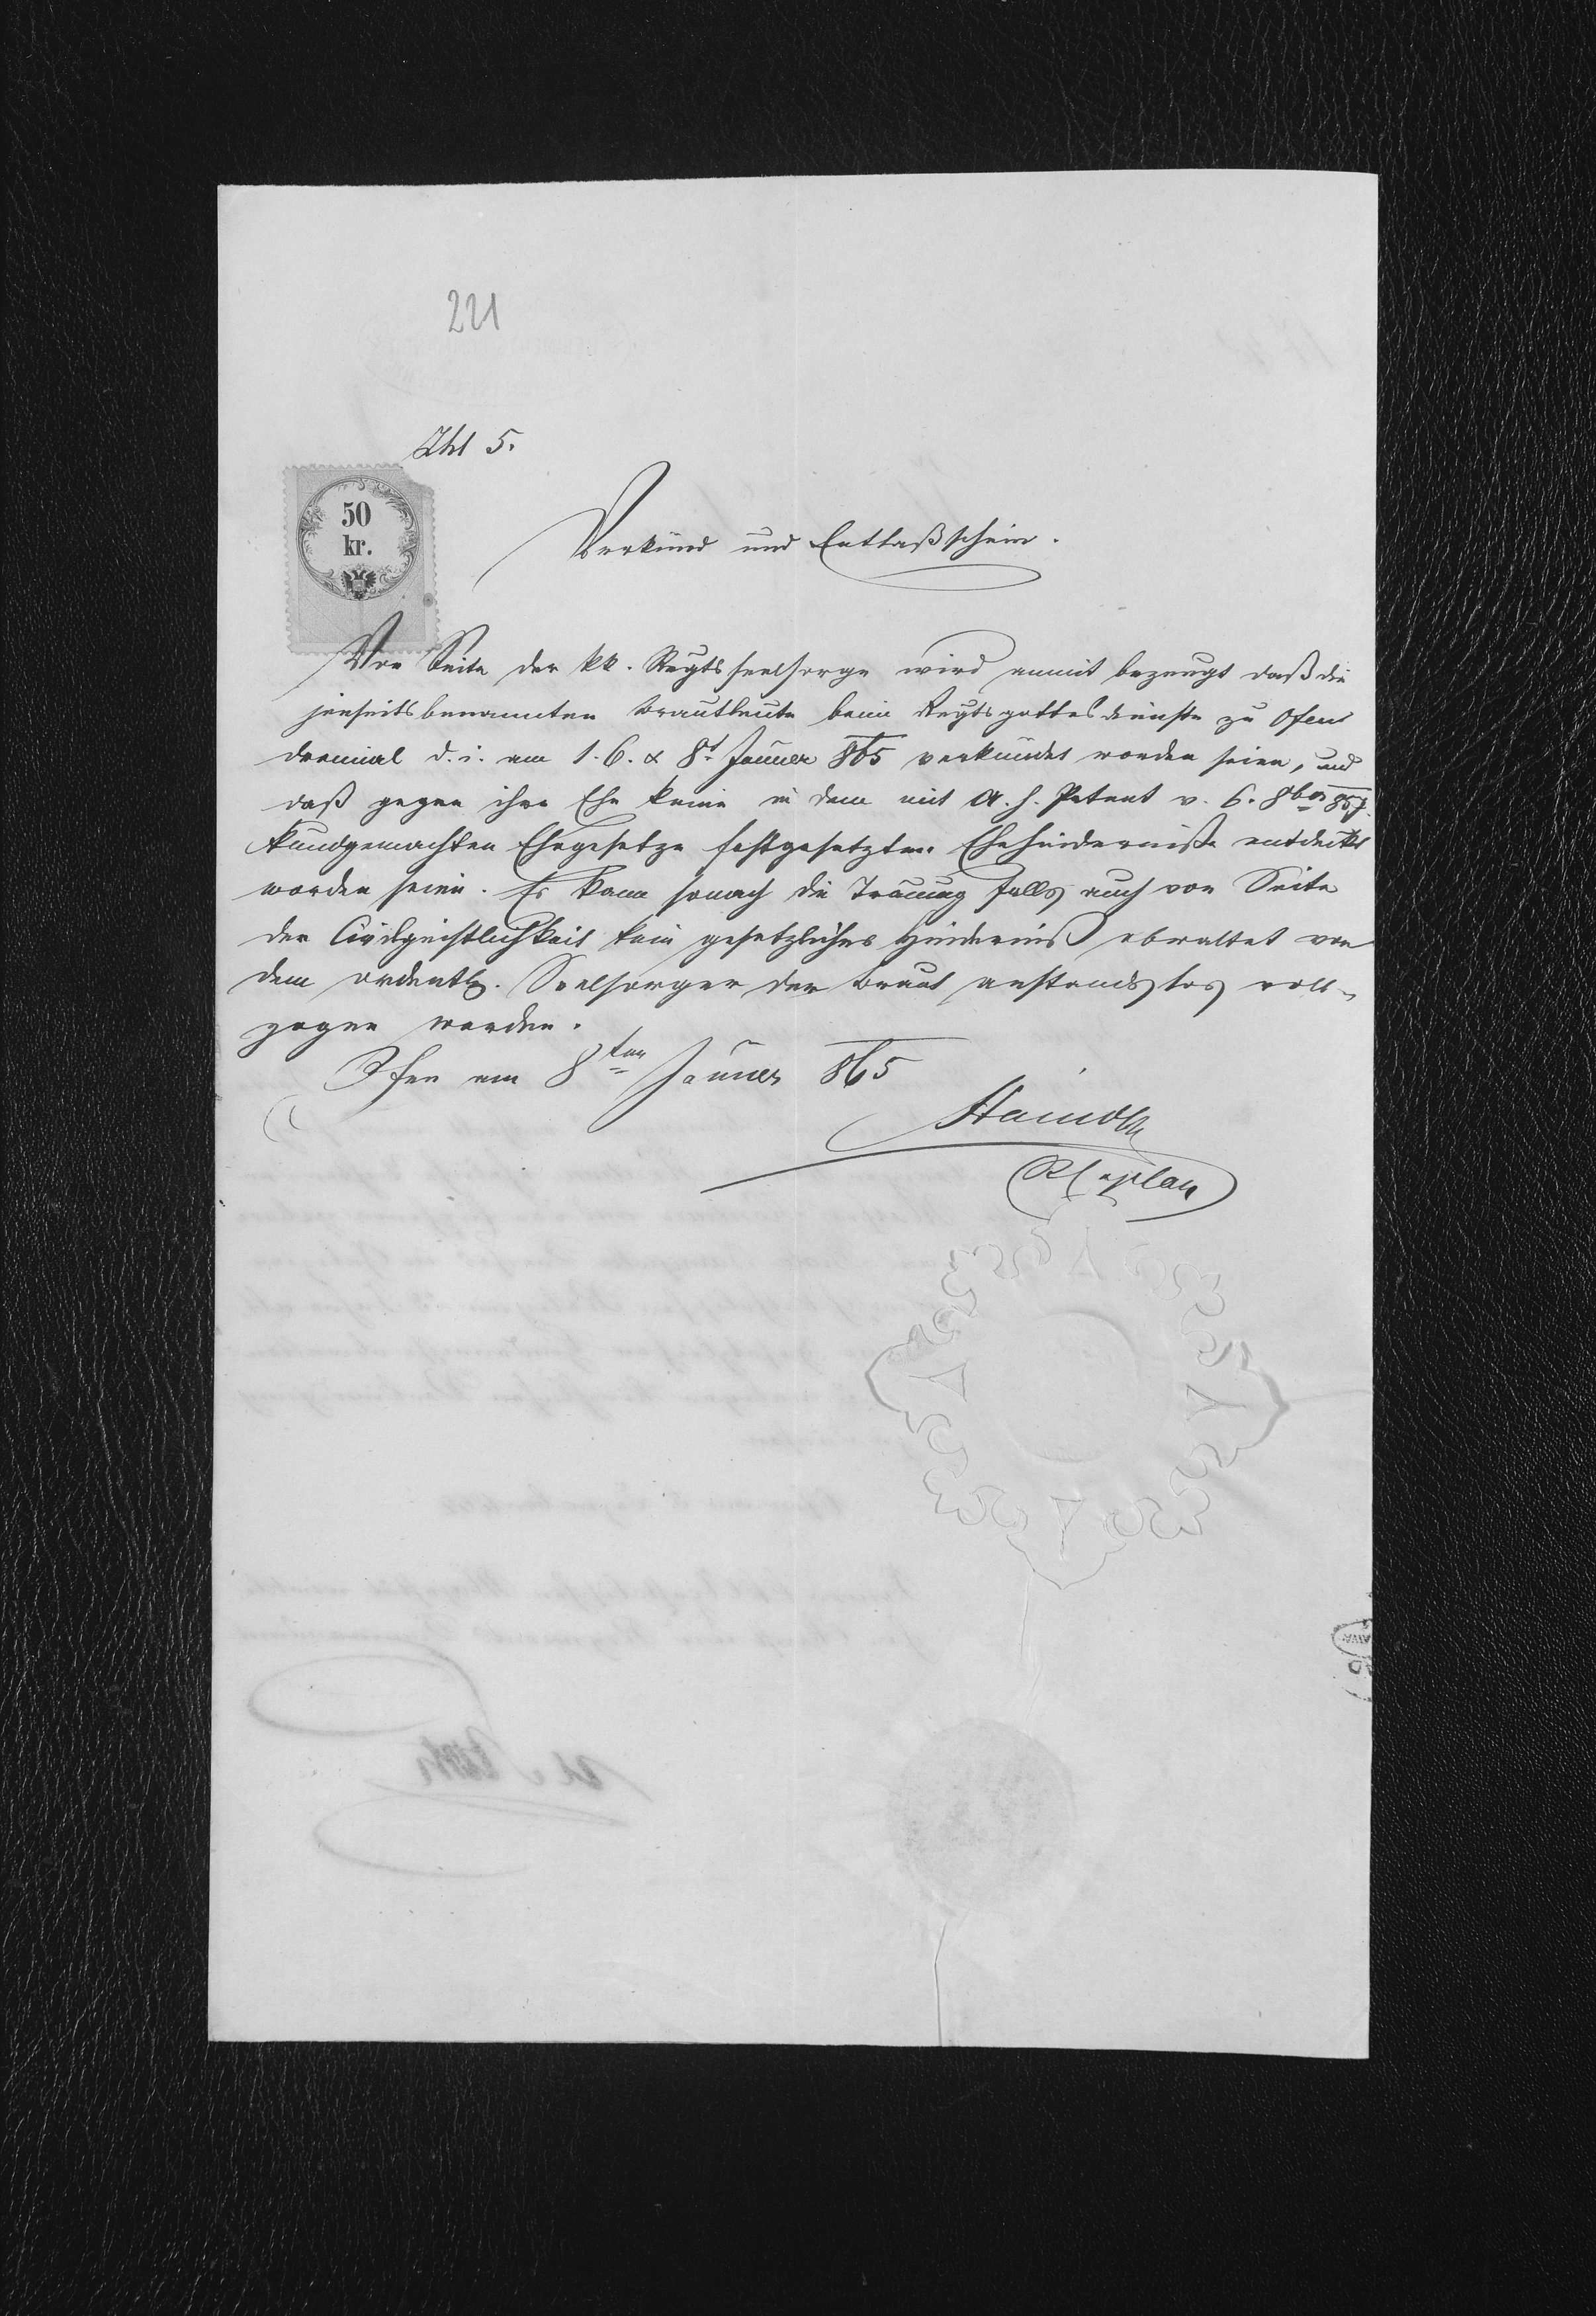 221
Zhl 5.
50
kr.
Verkünd und Entlaßschein.
Von Seite der kk. Regtsseelsorge wird anmit bezeugt daß die
jenseitsbenannten Brautleute beim Regtsgottesdienste zu Ofen
dreimal d. i. am 1. 6. & 8t Jänner 865 verkündet worden seien, und
daß gegen ihre Ehe keine in dem mit A. h. Patent v. 6. 8ber 857.
kundgemachten Ehegesetze festgesetzten Ehehinderniße entdeckt
worden seien. Es kann sonach die Trauung falls auch von Seite
der Civilgeistlichkeit kein gesetzliches Hinderniß obwaltet von
dem ordentl. Seelsorger der Braut anstandslos voll-
zogen werden.
Ofen am 8ten Jänner 865
RCaplan